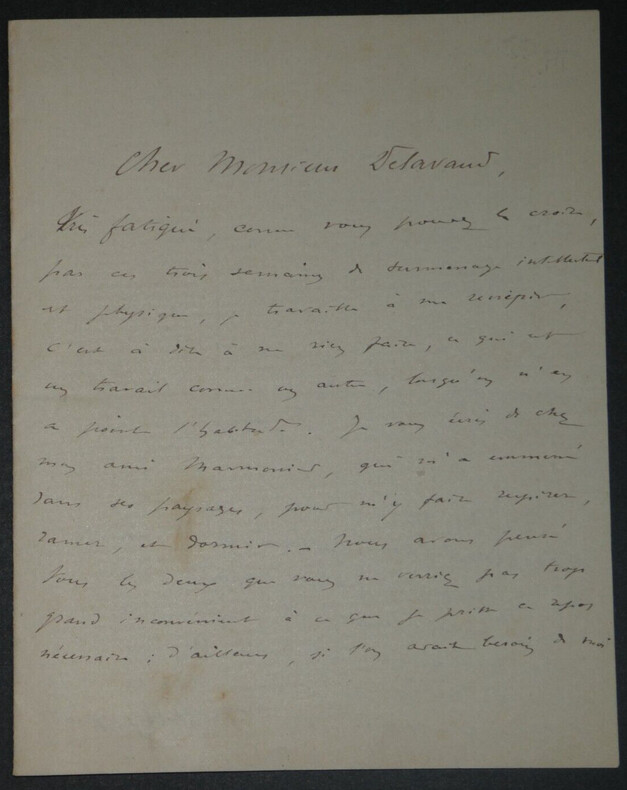 Cher Monsieur Delavaud,
Très fatigué, comme vous pouvez le croire,
par ces trois semaines de surmenage intellectuel
et physique, je travaille à me
c'est à dire à ne rien faire, ce qui est
un travail comme un autre, lorsqu'on n'en
a point l'habitude. Je vous écris de chez
mon ami qui m'a emmené
dans ses paysages, pour m'y faire respirer,
et dormir. — Nous avons pensé
tous les deux que vous ne verriez pas trop
grand inconvénient à ce que je prisse ce repos
nécessaire ; d'ailleurs, si l'on avait besoin de moi